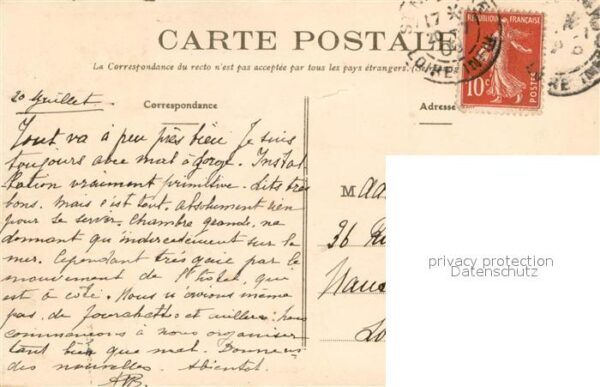 CARTE POSTALE
La Correspondance du recto n'est pas acceptée par tous les pays étrangers. (Se
RÉPUBLIQUE FRANÇAISE
10c
POSTES
Correspondance
Adresse
20 Juillet.
Tout va à peu près bien Je suis
toujours avec mal à gorge. Instal
lation vraiment primitive. Lits très
bons. Mais c'est tout. Absolument rien
pour se server. Chambre grande ne
donnant qu'indirectement sur la
mer. Cependant très gaie par le
mouvement de l'hotel, qui
est à côté. Nous n'avions même
pas de fourchettes et cuillers. nous
commençons à nous organiser
tant bien que mal. Donnez
des nouvelles. A bientot.
M
36 Ru
privacy protection
Datenschutz